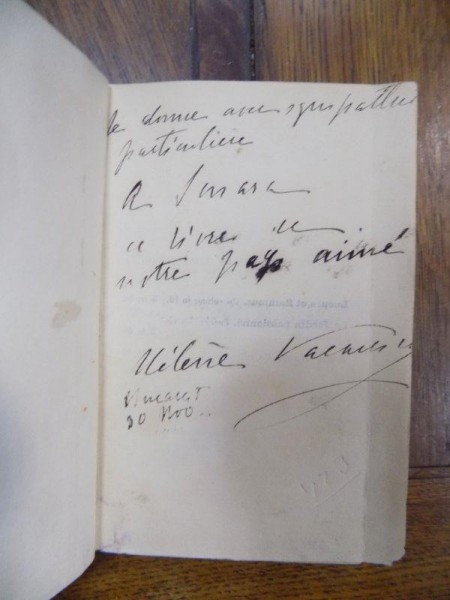 Je donne avec sympathie
particulière
A
ce livre de
notre pays aimé
Hélène Vacaresco
30 Nov